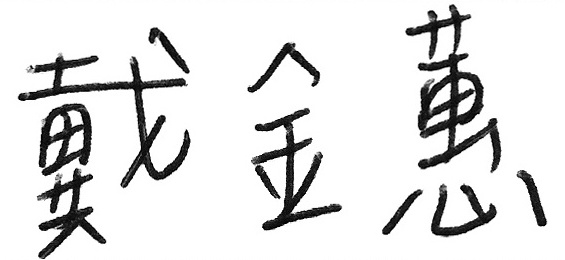 戴金蕙